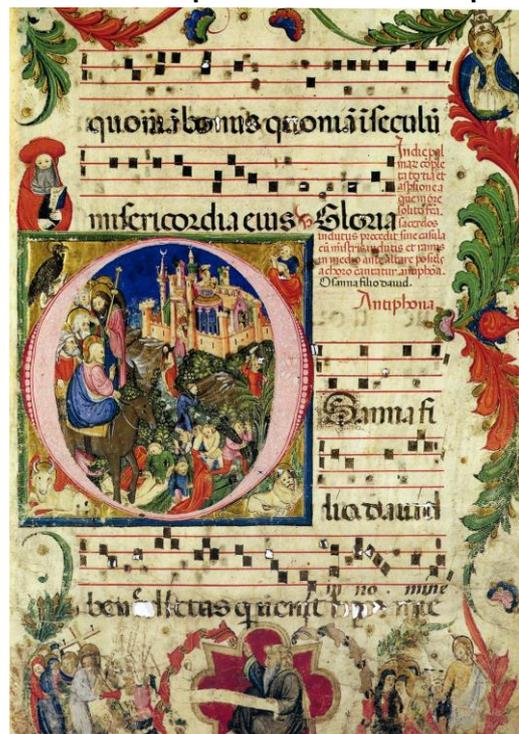 quoniā bonus quoniā ī seculū
misericordia eius Gloria
In die pal
mar[um] 
tertia et
aspsione a
que more
solito fca
sacerdos
indutus procedit sine casula
cū mīstris indutis et ramis
in medio ante altare positis
a choro cantatur antiphōa.
Osanna filio david.
Antiphona
Osanna fi
lio david
benedictus qui venit
no mine